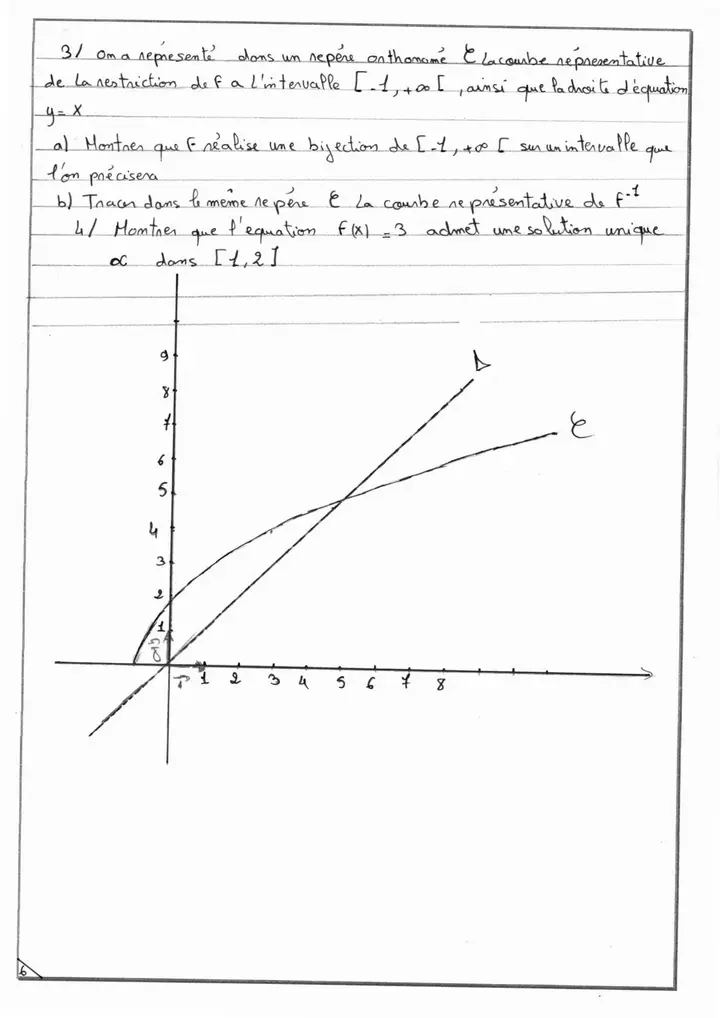 3/ On a représenté dans un repère orthonormé ℰ la courbe représentative
de la restriction de f a l'intervalle [-1, +∞ [, ainsi que la droite d'équation
y = x
a) Montrer que f réalise une bijection de [-1, +∞ [ sur un intervalle que
l'on précisera
b) Tracer dans le même repère ℰ la courbe représentative de f⁻¹
4/ Montrer que l'equation f(x) = 3 admet une solution unique
α dans [1,2]
9
Δ
8
7
ℰ
6
5
4
3
2
1
1 2 3 4 5 6 7 8
6